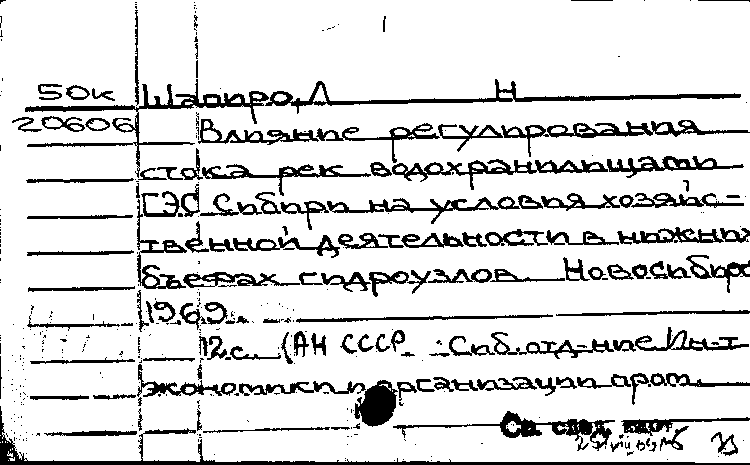 50к Шапиро, Л Н
20606 Влияние регулирования
стока рек водохранилищами
ГЭС Сибири на условия хозяйс-
твенной деятельности в нижних
бьефах гидроузлов. Новосибирс
1969.
12с. (АН СССР. Сиб. отд-ние Ин-т
экономики и организации пром.
См. след. карт.